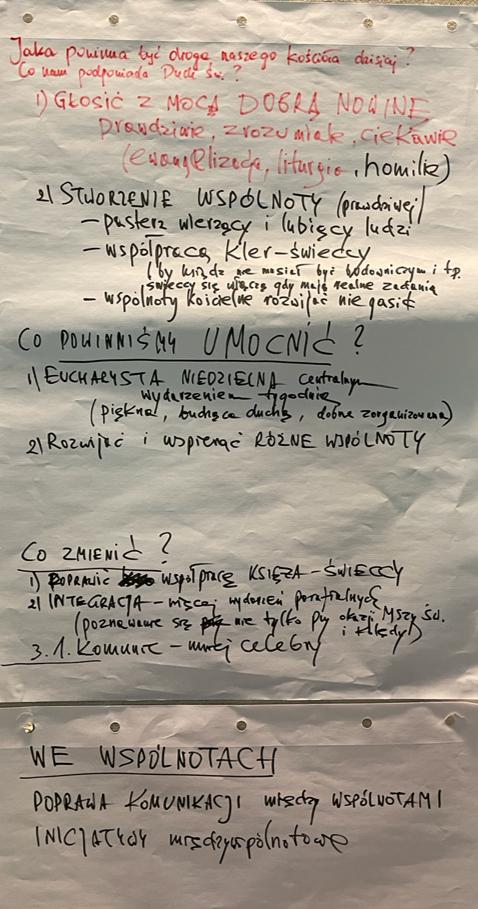 Jaka powinna być droga naszego kościoła dzisiaj?
Co nam podpowiada Duch św.?
1) GŁOSIĆ Z MOCĄ DOBRĄ NOWINĘ
prawdziwie, zrozumiale, ciekawie
(ewangelizacja, liturgia, homilie)
2) STWORZENIE WSPÓLNOTY (prawdziwej)
- pasterz wierzący i lubiący ludzi
- współpraca kler-świeccy
(by ksiądz nie musiał być budowniczym i tp.
świeccy się włączą gdy mają realne zadania
- wspólnoty kościelne rozwijać nie gasić
CO POWINNIŚMY UMOCNIĆ?
1) EUCHARYSTIA NIEDZIELNA centralnym
wydarzeniem tygodnia
(piękna, budząca ducha, dobrze zorganizowana)
2) Rozwijać i wspierać RÓŻNE WSPÓLNOTY
CO ZMIENIĆ?
1) POPRAWIĆ współpracę KSIĘŻA-ŚWIECCY
2) INTEGRACJA - więcej wydarzeń parafialnych
(poznawanie się nie tylko przy okazji MSZY ŚW.
i kolędy)
3. 1. Komunie - mniej celebry
WE WSPÓLNOTACH
POPRAWA KOMUNIKACJI między WSPÓLNOTAMI
INICJATYWY międzywspólnotowe